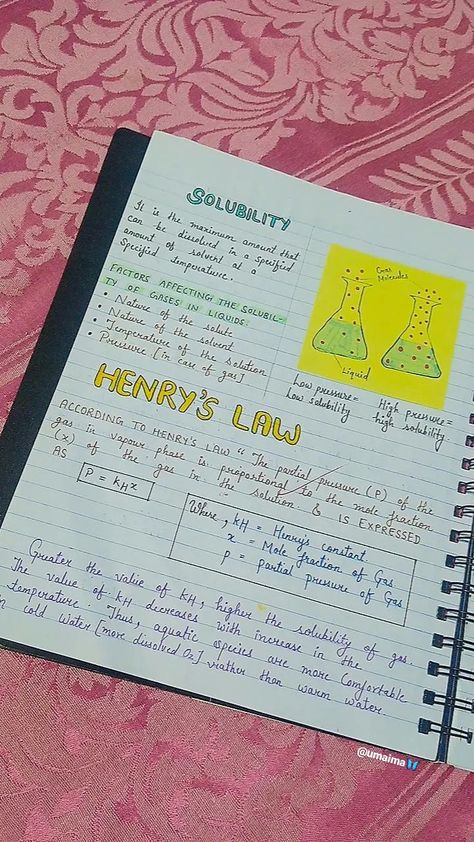 SOLUBILITY
It is the maximum amount that
can be dissolved in a specified
amount of solvent at a
specified temperature.
FACTORS AFFECTING THE SOLUBIL-
TY OF GASES IN LIQUIDS:
• Nature of the solute
• Nature of the solvent
• Temperature of the solution
• Pressure [in case of gas]
Gas
Molecules
Liquid
Low pressure=
Low solubility
High pressure=
high solubility.
HENRY'S LAW
ACCORDING TO HENRY'S LAW "The partial pressure (P) of the
gas in vapour phase is proportional to the mole fraction
(x) of the gas in the solution." & IS EXPRESSED
AS
P = kHx
Where, kH = Henry's constant
x = Mole fraction of Gas
P = partial pressure of Gas
Greater the value of kH, higher the solubility of gas.
The value of kH decreases with increase in the
temperature. Thus, aquatic species are more comfortable
in cold water [more dissolved O2] rather than warm water.
@umaima🦋